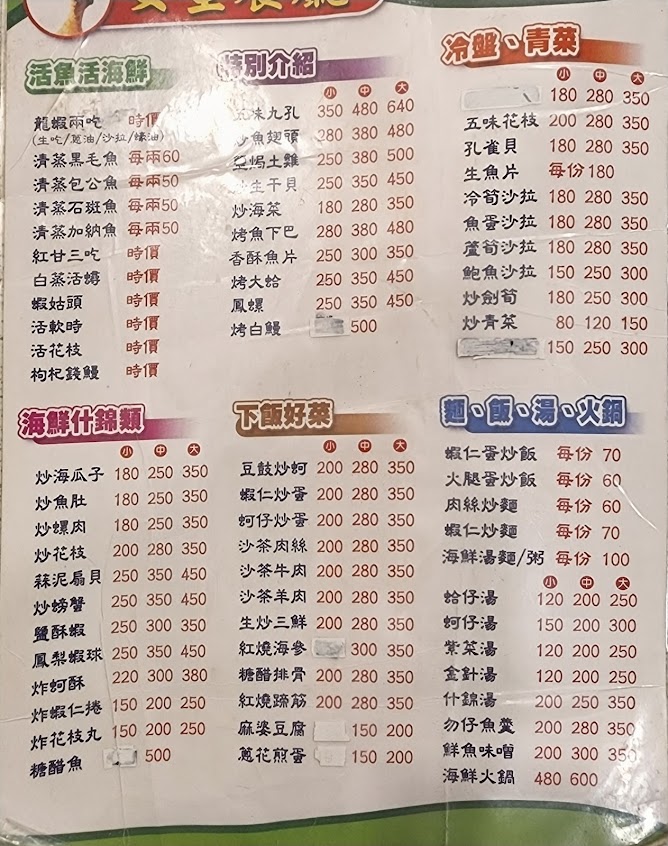 活魚活海鮮
龍蝦兩吃 時價
(生吃/蔥油/沙拉/蠔油)
清蒸黑毛魚 每兩60
清蒸包公魚 每兩50
清蒸石斑魚 每兩50
清蒸加納魚 每兩50
紅甘三吃 時價
白蒸活蟳 時價
蝦姑頭 時價
活軟時 時價
活花枝 時價
枸杞錢鰻 時價
特別介紹
小 中 大
五味九孔 350 480 640
魚翅頭 280 380 480
鹽焗土雞 250 380 500
生干貝 250 350 450
炒海菜 180 280 350
烤魚下巴 280 380 480
香酥魚片 250 300 350
烤大蛤 250 350 450
鳳螺 250 350 450
烤白鰻 500
冷盤、青菜
小 中 大
180 280 350
五味花枝 200 280 350
孔雀貝 180 280 350
生魚片 每份180
冷筍沙拉 180 280 350
魚蛋沙拉 180 280 350
蘆筍沙拉 180 280 350
鮑魚沙拉 150 250 300
炒劍筍 180 250 300
炒青菜 80 120 150
150 250 300
海鮮什錦類
小 中 大
炒海瓜子 180 250 350
炒魚肚 180 250 350
炒螺肉 180 250 350
炒花枝 200 280 350
蒜泥扇貝 250 350 450
炒螃蟹 250 350 450
鹽酥蝦 250 300 350
鳳梨蝦球 250 350 450
炸蚵酥 220 300 380
炸蝦仁捲 150 200 250
炸花枝丸 150 200 250
糖醋魚 500
下飯好菜
小 中 大
豆鼓炒蚵 200 280 350
蝦仁炒蛋 200 280 350
蚵仔炒蛋 200 280 350
沙茶肉絲 200 280 350
沙茶牛肉 200 280 350
沙茶羊肉 200 280 350
生炒三鮮 200 280 350
紅燒海參 300 350
糖醋排骨 200 280 350
紅燒蹄筋 200 280 350
麻婆豆腐 150 200
蔥花煎蛋 150 200
麵、飯、湯、火鍋
蝦仁蛋炒飯 每份 70
火腿蛋炒飯 每份 60
肉絲炒麵 每份 60
蝦仁炒麵 每份 70
海鮮湯麵/粥 每份 100
小 中 大
蛤仔湯 120 200 250
蚵仔湯 150 200 300
紫菜湯 120 200 250
金針湯 120 200 250
什錦湯 200 250 350
勿仔魚羹 200 280 350
鮮魚味噌 200 300 350
海鮮火鍋 480 600